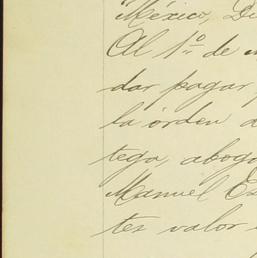 México, Di
Al 1º de m
dar pagar
la órden d
tega, aboga
Manuel Es
tes valor